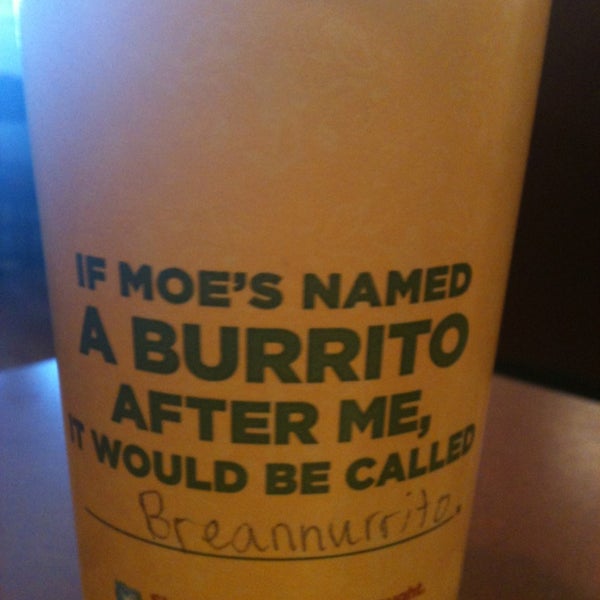 IF MOE'S NAMED
A BURRITO
AFTER ME,
IT WOULD BE CALLED
Breannurrito.